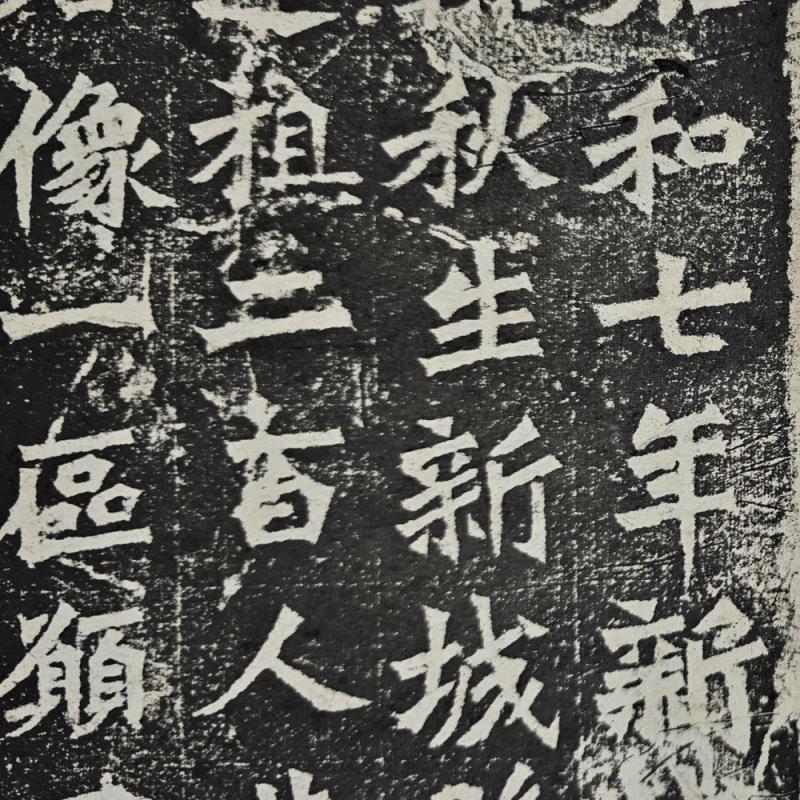 和七年新
秋生新城
祖二百人
像一區願